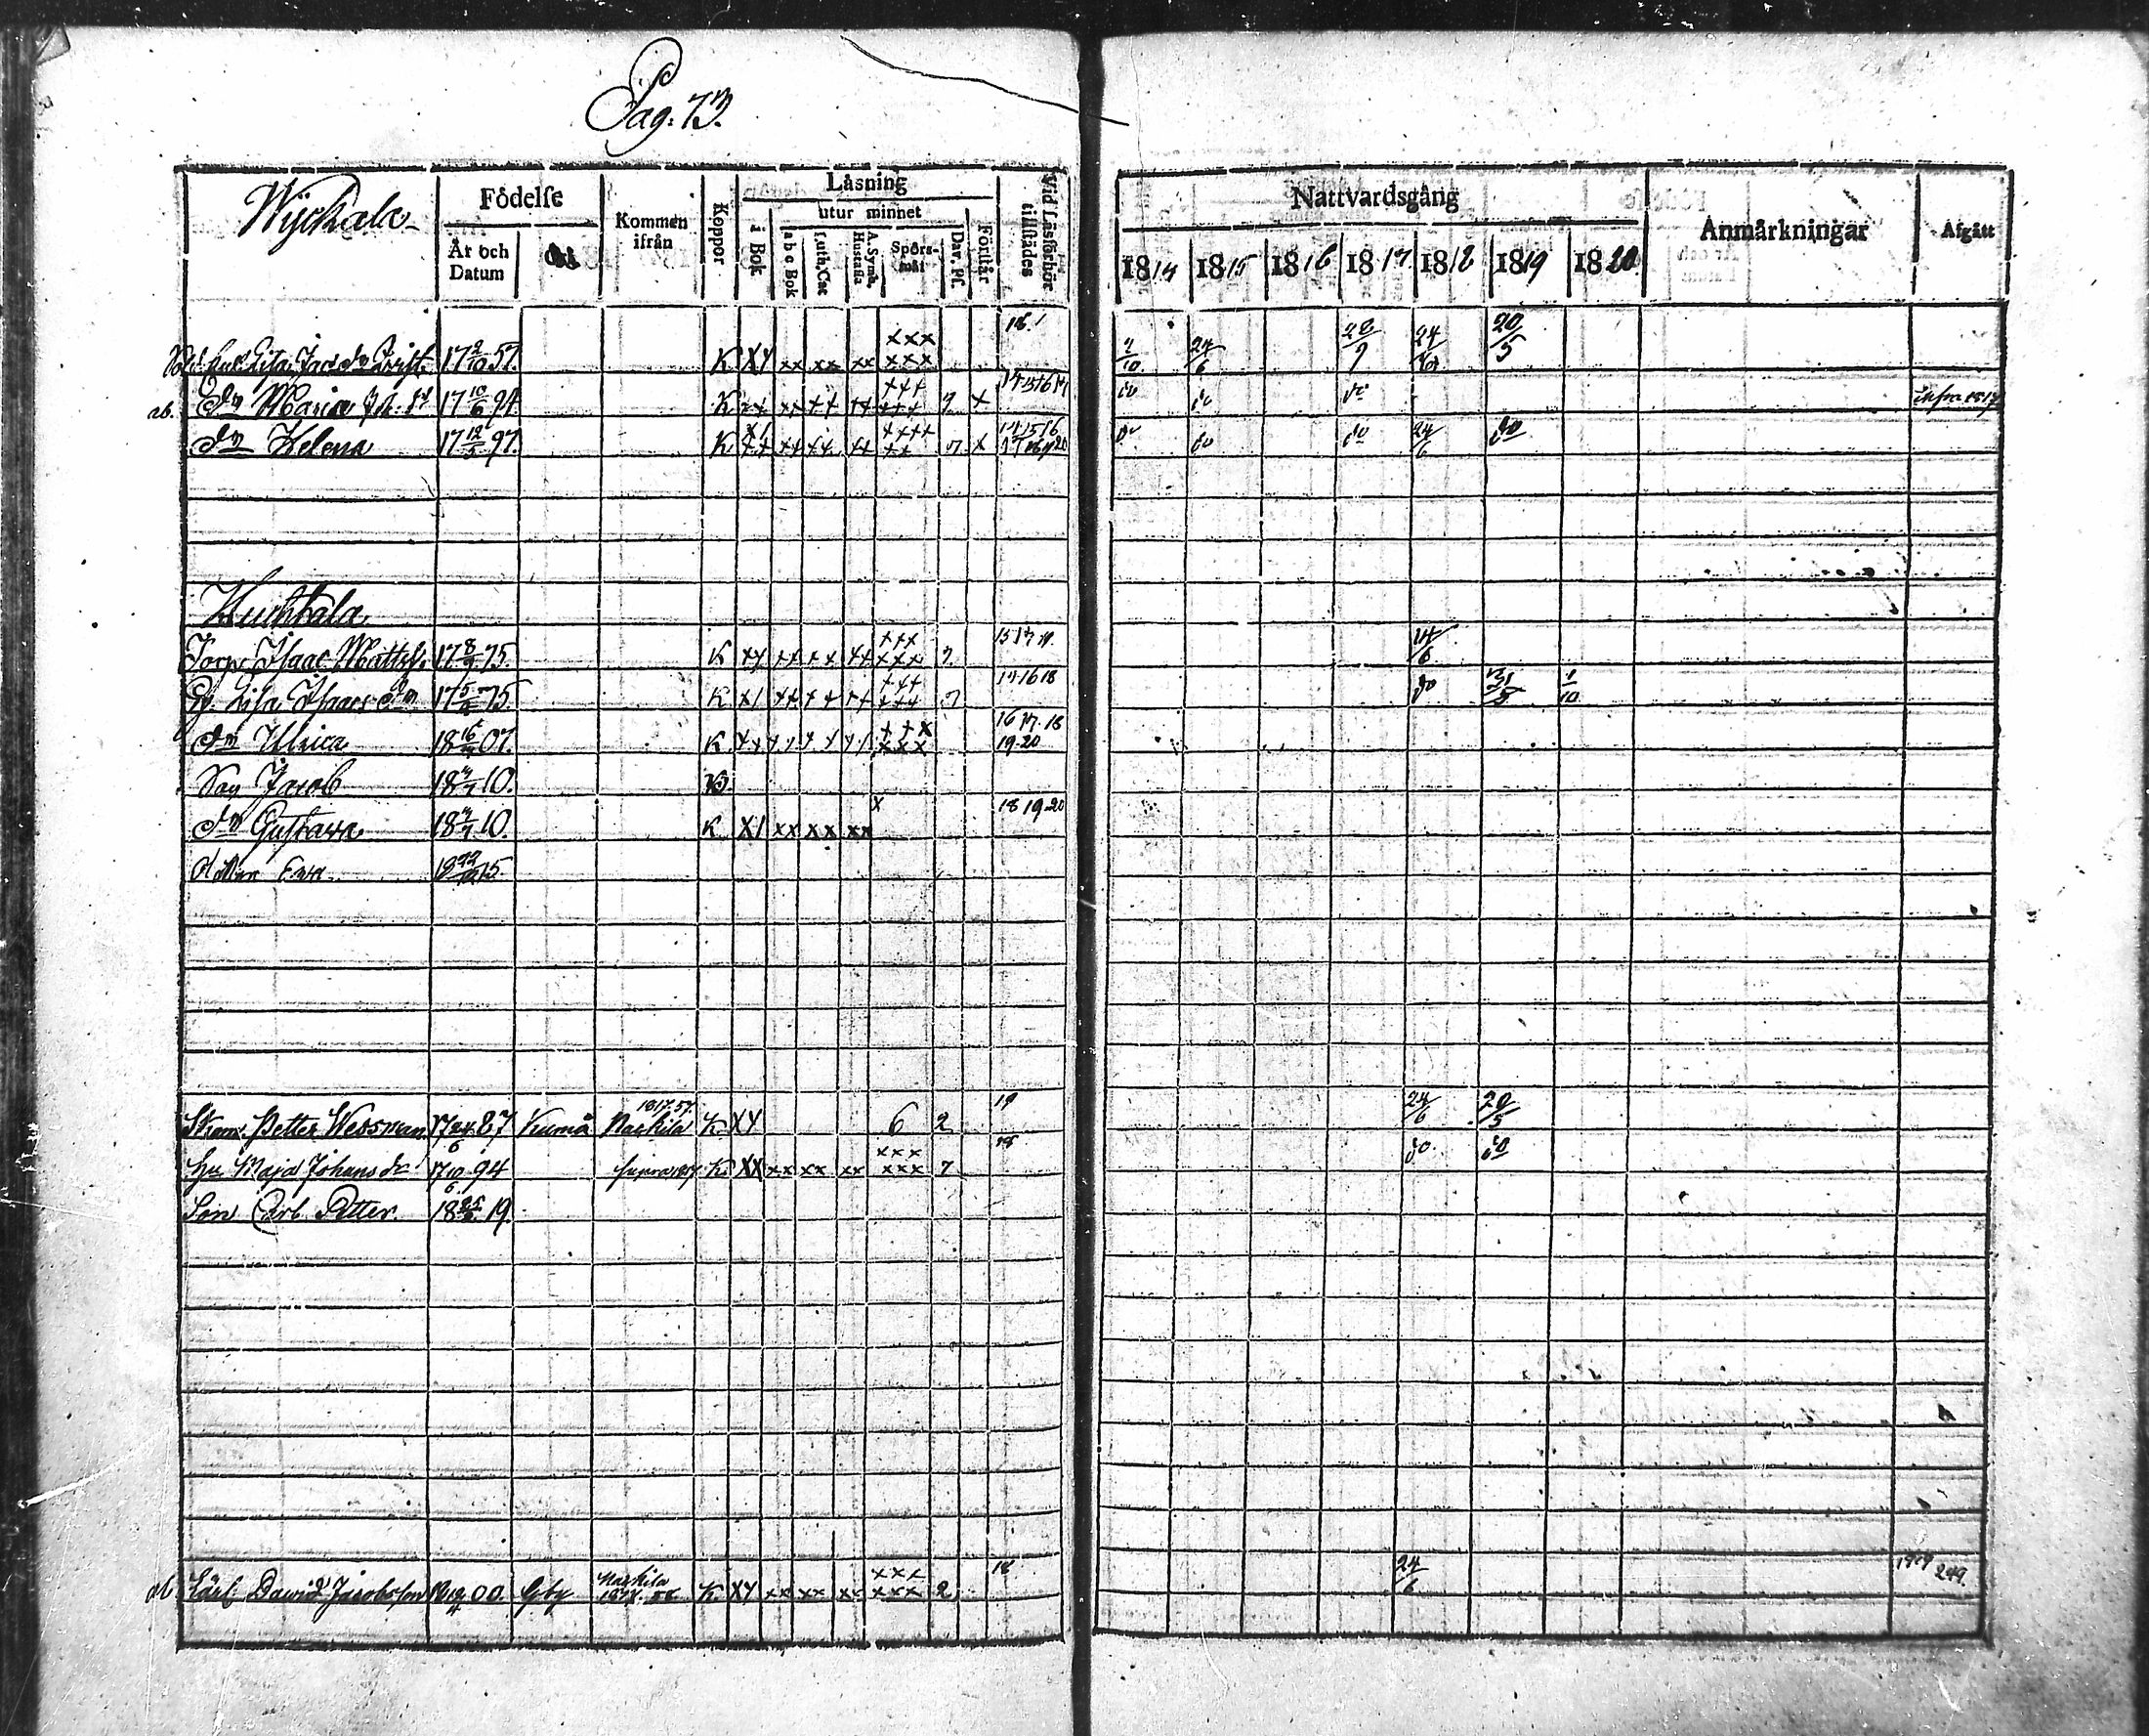 Pag: 73.
Wijchala
Födelse
År och Datum
Kommen ifrån
Koppor
Läsning
i Bok
utur minnet
a b c Bok
Luth. Cat
A. Symb. Hustafla
Spörs-mål
Dav. Ps.
Förstår
Vid Läsförhör tillstädes
Nattvardsgång
1814 1815 1816 1817 1818 1819 1820
Anmärkningar
Afgått
Lisa Jacs dr 17 9/10 57. K XX xx xx xx xxx xxx 18. 7/10 24/6 28/9 24/6 20/5
ab. Dr Maria Joh. dr 17 10/6 94 K xx xx xx xx xxx xxx 7 x 14 15 16 17 do do do infra 1817
Dr Helena 17 12/5 97. K xx xx xx xx xxxx xx 7 x 14 15 16 17 18 19 20 do do do 24/6 do
Huchtala
Torp. Isaac Matts. 17 8/9 75. K xx xx xx xx xxx xxx 7. 15 17 19. 24/6
Hu. Lisa Isaacs dr 17 5/2 75 K xx xx xx xx xxx xxx 7 14 16 18 do 31/5 1/10
Dr Ulrica 18 16/4 07. K xx xx xx xx xxx xxx 16 17. 18 19-20
Son Jacob 18 4/7 10. K
Dr Gustava 18 4/7 10. K xx xx xx xx x 18 19-20
Ewa 18 22/10 15.
Petter Wessman 17 24/6 87 Kumå 1817.57. Naskila K. XX 6 2 19 24/6 20/5
Hu Maja Johans dr 17 10/6 94 supra 1817 K XX xx xx xx xxx xxx 7 18 do do
Son Carl Petter. 18 25/2 19.
ab. Lärl David Jacobsson 00. Gby Naskila K XX xx xx xx xxx xxx 2 18 24/6 1819 249.